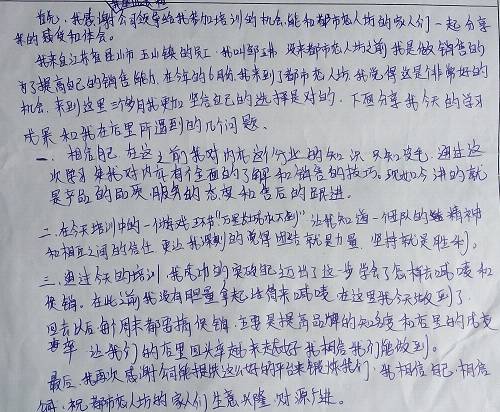 首先，我感谢公司领导给我参加培训的机会，能和都市恋人坊的家人们一起分享
我的感受和体会。
我来自江苏省昆山市玉山镇的员工，我叫邹，没来都市恋人坊之前我是做销售的
为了提高自己的销售能力，在今年的6月份我来到了都市恋人坊，我觉得这是个非常好的
机会，来到这里三个多月我更加坚信自己的选择是对的，下面分享我今天的学习
成果和我在店里所遇到的几个问题、
一、相信自己，在这之前我对内衣这个行业的知识只知皮毛，通过这
次学习使我对内衣有个全面的了解和销售的技巧。现如今讲的就
是产品的品项，服务的态度和售后的跟进。
二、在今天培训中的一个游戏环节"万里长城永不倒"让我知道一个团队的精神
和相互之间的信任，更让我深刻的觉得团结就是力量，坚持就是胜利。
三、通过今天的培训，我成功的突破自己迈出了这一步学会了怎样去喊麦和
促销。在此之前我没有胆量拿起话筒来喊麦，在这里我今天做到了，
回去以后每个周末都要搞促销，主要是提高品牌的知名度和店里的成交
率，让我们的店里回头率越来越好，我相信我们能做到。
最后，我再次感谢公司能提供这么好的平台来锻炼我们，我相信自己，相信
祝都市恋人坊的家人们生意兴隆，财源广进。